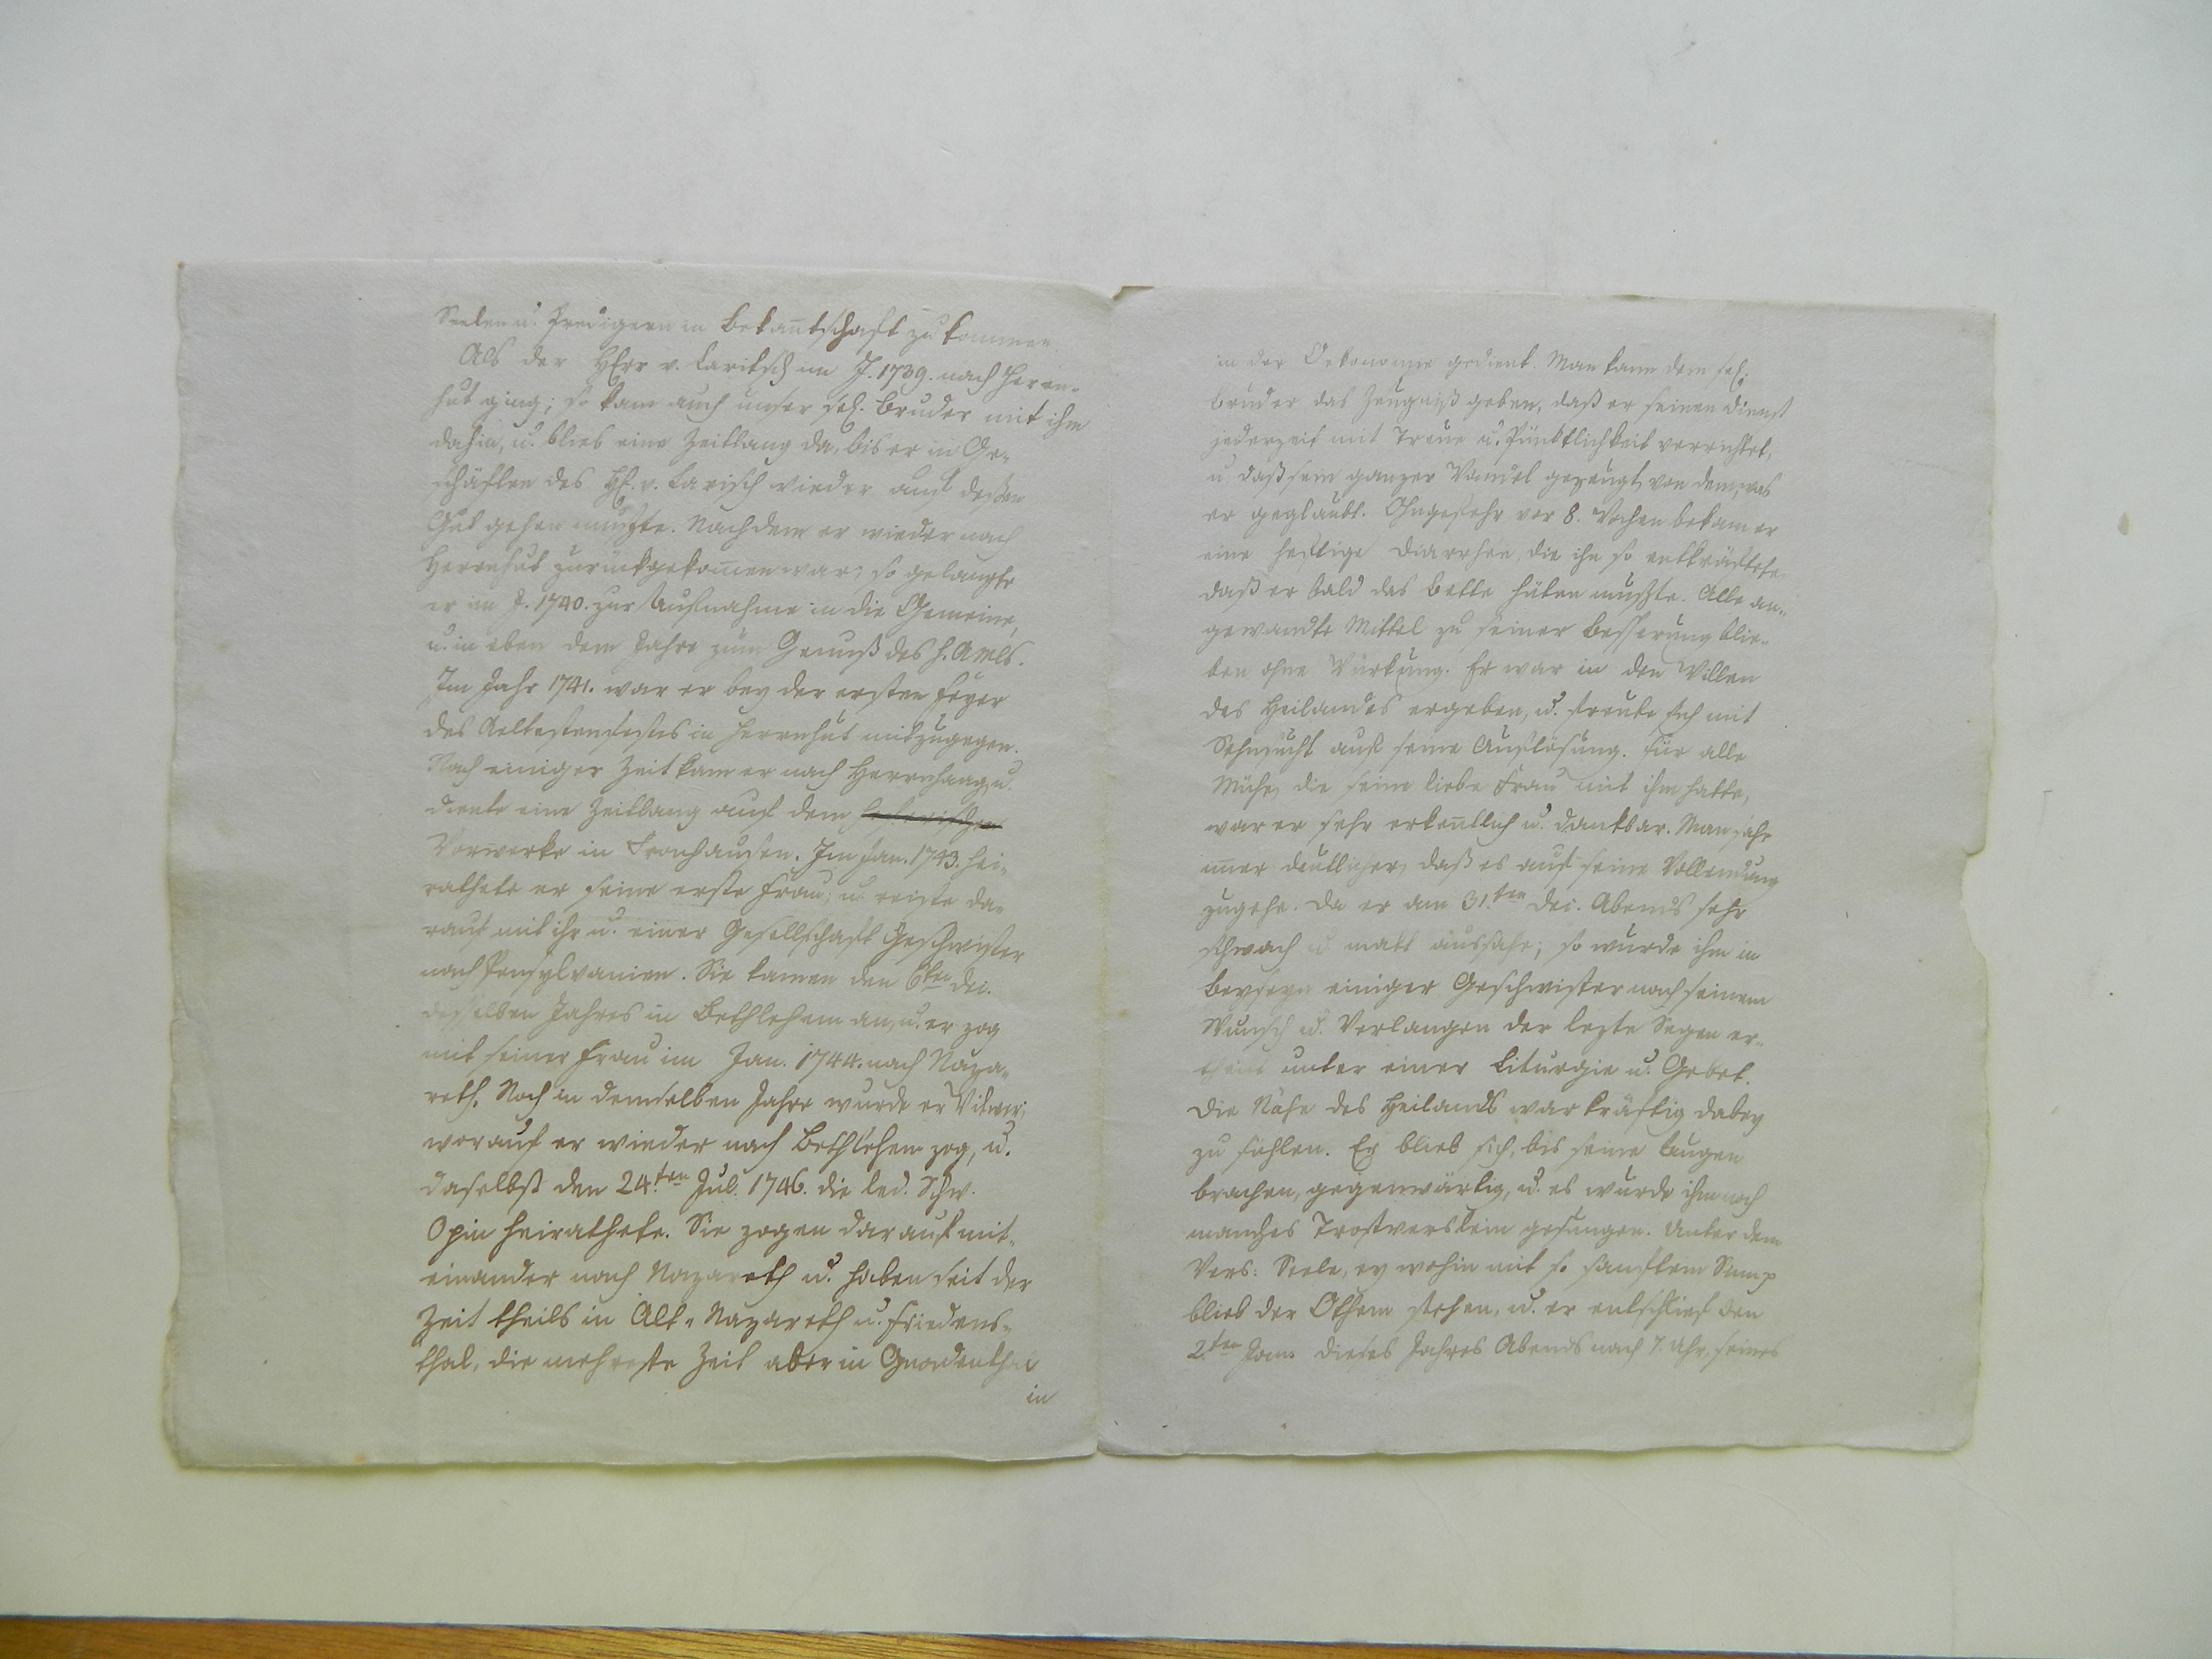 Seelen u. Predigern in Bekantschaft zu kommen
Als der HErr v. Laritsch im J. 1739. nach Herrn-
hut ging; so kam auch unser sel. Bruder mit ihm
dahin, u. blieb eine Zeitlang da, bis er in Ge-
schäften des H. v. Larisch wieder auf deßen
Gut gehen mußte. Nachdem er wieder nach
Herrnhut zurückgekomen war; so gelangte
er im J. 1740. zur Aufnahme in die Gemeine,
u. in eben dem Jahre zum Genuß des h. Amls.
Im Jahr 1741. war er bey der ersten Feyer
des Aeltestenfestes in Herrnhut mitzugegen.
Nach einiger Zeit kam er nach Herrnhaag, u.
diente eine Zeitlang auf dem
Vorwerke in Leonhausen. Im Jan. 1743. hei-
rathete er seine erste Frau; u. reiste da-
rauf mit ihr u. einer Gesellschaft Geschwister
nach Pensylvanien. Sie kamen den 6ten Dec.
desselben Jahres in Bethlehem an, u. er zog
mit seiner Frau im Jan. 1744. nach Naza-
reth. Noch in demselben Jahre wurde er Witwer;
worauf er wieder nach Bethlehem zog, u.
daselbst den 24.ten Jul. 1746. die led. Schw.
Opin heirathete. Sie zogen darauf mit-
einander nach Nazareth u. haben seit der
Zeit theils in Alt-Nazareth u. Friedens-
thal, die mehreste Zeit aber in Gnadenthal
in
in der Oekonomie gedient. Man kann dem sel.
Bruder das Zeugniß geben, daß er seinen Dienst
jederzeit mit Treue u. Pünktlichkeit verrichtet,
u. daß sein ganzer Wandel gezeugt, von dem, was
er geglaubt. Ohngefehr vor 8. Wochen bekam er
eine heftige Diarrhee, die ihn so entkräftete,
daß er bald das Bette hüten mußte. Alle an-
gewandte Mittel zu seiner Besserung blie-
ben ohne Würkung. Er war in den Willen
des Heilandes ergeben, u. freute sich mit
Sehnsucht auf seine Auflösung. Für alle
Mühe, die seine liebe Frau mit ihm hatte,
war er sehr erkentlich u. dankbar. Man sahe
imer deutlicher, daß es auf seine Vollendung
zugehe. Da er am 31.ten Dec. Abends sehr
schwach u. matt aussahe; so wurde ihm in
Beyseyn einiger Geschwister nach seinem
Wunsch u. Verlangen der lezte Segen er-
theilt unter einer Liturgie u. Gebet.
Die Nähe des Heilands war kräftig dabey
zu fühlen. Er blieb sich, bis seine Augen
brachen, gegenwärtig, u. es wurde ihm noch
manches Trostverslein gesungen. Unter dem
Vers: Seele, ey wohin mit so sanftem Sinn p
blieb der Othem stehen, u. er entschlief den
2.ten Jan. dieses Jahres Abends nach 7. Uhr, seines